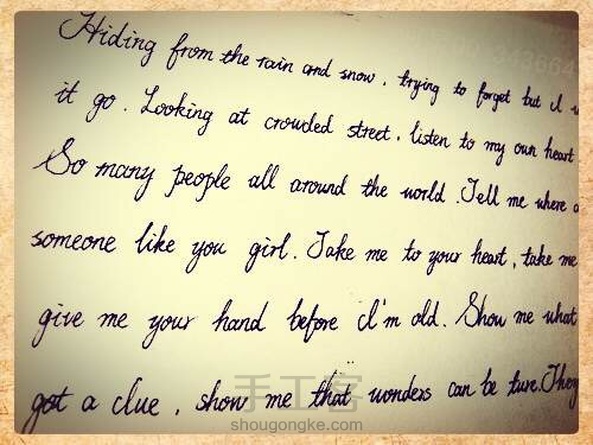 Hiding from the rain and snow. trying to forget but I
it go. Looking at crowded street. listen to my own heart.
So many people all around the world. Tell me where
someone like you girl. Take me to your heart, take me
give me your hand before I'm old. Show me what
got a clue, show me that wonders can be ture. They
手工客
shougongke.com